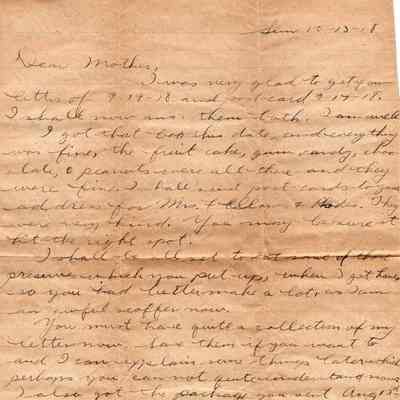 Sun 10-13-18
Dear Mother,
I was very glad to get your
letter of 9-14-18 and post card 9-17-18.
I shall now ans. them both. I am well
I got that box this date, and everything
was fine, the fruit cake, gum candy, choc
late, & peanuts were all there and they
were fine. I shall send post cards to your
address for Mrs. & They
were very kind. You may be sure it
hit the right spot.
I shall be all set to eat some of those
preserves which you put up, when I get home
so you had better make a lot, as I am
an awful scoffer now.
You must have quite a collection of my
letters now. Save them if you want to
and I can explain some things later which
perhaps you can not quite understand now.
I also got the package you sent Aug 15th